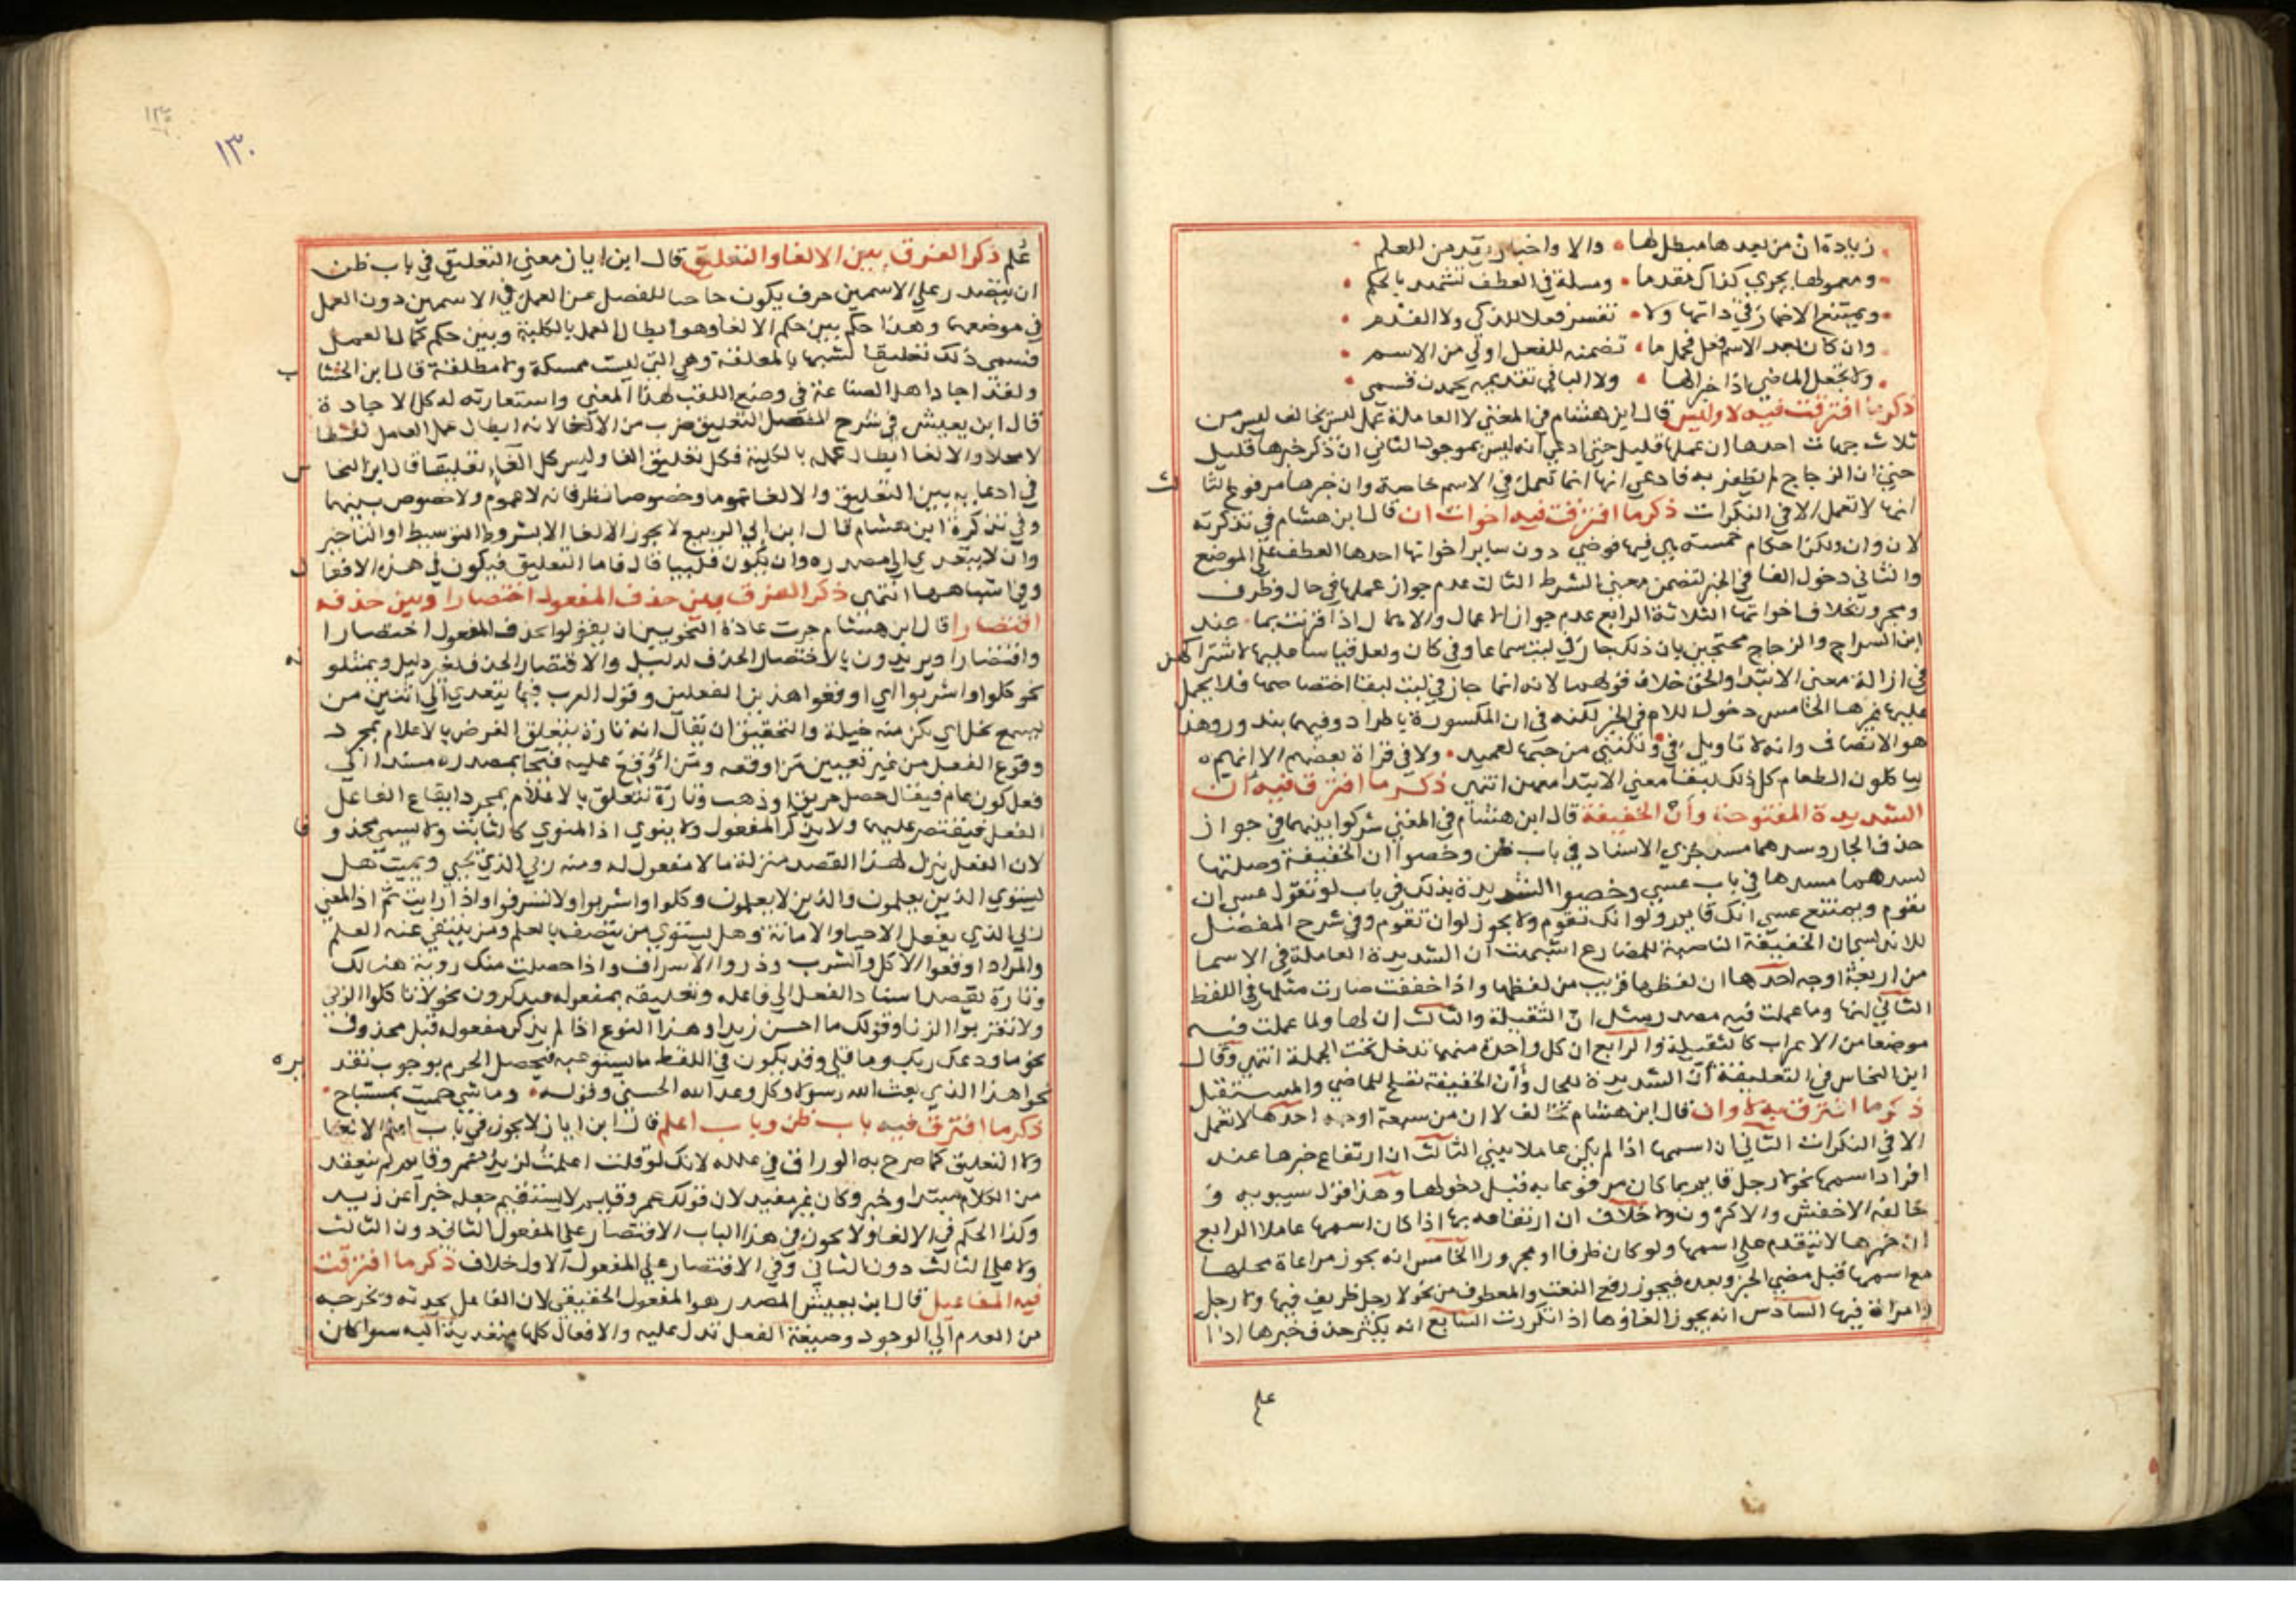 زيادة ان من بعدها مبطل لها • والا واخبار يقدمن للعلم
ومعمولها يجري كذاك مقدما • ومسلة في العطف تشهد بالحكم
ويمتنع الاضمار في ذاتها ولا • تفسر فعلا للذكي ولا الفدم
وان كان بعد الاسم فعل فحمل ما • تضمنه للفعل اولي من الاسم
ولا تجعل الماضي اذا خبرا لها • ولا البا في تقديمه يحمدن قسمي
ذكر ما افترقت فيه لا وليس قال ابن هشام في المغني لا العاملة عمل ليس تخالف ليس من
ثلاث جهات احدها ان عملها قليل حتي ادعي انه ليس بموجود الثاني ان ذكر خبرها قليل
حتي ان الزجاج لم يظفر به فادعي انها انما تعمل في الاسم خاصة وان خبرها مرفوع الثالث
انها لا تعمل الا في النكرات ذكر ما افترقت فيه اخوات ان قال ابن هشام في تذكرته
لان وان ولكن احكام خمسة هي فيها فوضي دون ساير اخواتها احدها العطف علي الموضع
والثاني دخول الفا في الخبر لتضمن معني الشرط الثالث عدم جواز عملها في حال وظرف
ومجرور بخلاف اخواتها الثلاثة الرابع عدم جواز الاعمال والاهمال اذا قرنت بما عند
ابن السراج والزجاج محتجين بان ذلك جاز في ليت سماعا وفي كان ولعل قياسا عليها لاشتراكهن
في ازالة معني الابتدا والحق خلاف قولهما لانه انما جاز في ليت لبقا اختصاصها فلا يحمل
عليها غيرها الخامس دخول اللام في الخبر لكنه في ان المكسورة باطراد وفيهما بندور وهذا
هو الانصاف وانه لا تاويل في ولكنني من حبها لعميد • ولا في قراة بعضهم الا انهم
لياكلون الطعام كل ذلك لبقا معني الابتدا معهن انتهي ذكر ما افترق فيه ان
الشديدة المفتوحة وأن الخفيفة قال ابن هشام في المغني شركوا بينهما في جواز
حذف الجار وسدهما مسد جزي الاسناد في باب ظن وخصوا ان الخفيفة وصلتها
بسدهما مسدها في باب عسي وخصوا الشديدة بذلك في باب لو تقول عسي ان
تقوم ويمتنع عسي انك قايم ولو انك تقوم ولا يجوز لو ان تقوم وفي شرح المفصل
للاندلسي ان الخفيفة الناصبة للمضارع اشبهت ان الشديدة العاملة في الاسما
من اربعة اوجه احدها ان لفظها قريب من لفظها واذا خففت صارت مثلها في اللفظ
الثاني انها وما عملت فيه مصدر مثل ان الثقيلة والثالث ان لها ولما عملت فيه
موضعا من الاعراب كالثقيلة والرابع ان كل واحدة منهما تدخل تحت الجملة انتهي وقال
ابن النحاس في التعليقة أن الشديدة للحال وأن الخفيفة تصلح للماضي والمستقبل
ذكر ما افترق فيه لا وان قال ابن هشام تخالف لا ان من سبعة اوجه احدها لا تعمل
الا في النكرات الثاني ان اسمها اذا لم يكن عاملا بيني الثالث ان ارتفاع خبرها عند
افراد اسمها نحو لا رجل قايم بما كان مرفوعا به قبل دخولها وهذا قول سيبويه و
خالفه الاخفش والاكثرون ولا خلاف ان ارتفاعه بها اذا كان اسمها عاملا الرابع
ان خبرها لا يتقدم علي اسمها ولو كان ظرفا او مجرورا الخامس انه يجوز مراعاة محلها
مع اسمها قبل مضي الخبر وبعده فيجوز رفع النعت والمعطوف من نحو لا رجل ظريف فيها ولا رجل
وامراة فيها السادس انه يجوز الغاوها اذا تكررت السابع انه يكثر حذف خبرها اذا
علم
١٣٠
عُلم ذكر الفرق بين الالغا والتعليق قال ابن اياز معني التعليق في باب ظن
ان يتصدر علي الاسمين حرف يكون حاجبا للفصل عن العمل في الاسمين دون العمل
في موضعهما وهذا حكم بين حكم الالغا وهو ابطال العمل بالكلية وبين حكم كمال العمل
فسمي ذلك تعليقا لشبهها بالمعلقة وهي التي ليست ممسكة ولا مطلقة قال ابن الخشاب
ولقد اجاد اهل الصناعة في وضع اللقب لهذا المعني واستعارته له كل الاجادة
قال ابن يعيش في شرح المفصل التعليق ضرب من الالغا لانه ابطال عمل العامل لفظا
لا محلا والالغا ابطال عمله بالكلية فكل تعليق الغا وليس كل الغا تعليقا قال ابن النحاس
في ادعايه بين التعليق والالغا عموما وخصوصا نظر فانه لا عموم ولا خصوص بينهما
وفي تذكرة ابن هشام قال ابن ابي الربيع لا يجوز الالغا الا بشروط التوسيط او التاخير
وان لا يتعدي الي مصدره وان يكون قلبيا قال فاما التعليق فيكون في هذه الافعال
وفي اشباهها انتهي ذكر الفرق بين حذف المفعول اختصارا وبين حذفه
اقتصارا قال ابن هشام جرت عادة النحويين ان يقولوا بحذف المفعول اختصارا
واقتصارا ويريدون بالاختصار الحذف لدليل والاقتصار الحذف لغير دليل ويمثلونه
نحو كلوا واشربوا اي اوقعوا هذين الفعلين وقول العرب فيما يتعدي الي اثنين من
يسمع يخل اي يكن منه خيلة والتحقيق ان يقال انه تارة يتعلق الغرض بالاعلام بمجرد
وقوع الفعل من غير تعيين من اوقعه ومن اوقع عليه فيجا بمصدره مسندا الي
فعل كون عام فيقال حصل حريق او ذهب وتارة يتعلق بالاعلام بمجرد ايقاع الفاعل
الفعل فيقتصر عليهما ولا يذكر المفعول ولا ينوي اذ المنوي كالثابت ولا يسمي محذوفا
لان الفعل ينزل لهذا القصد منزلة ما لا مفعول له ومنه ربي الذي يحيي ويميت هل
يستوي الذين يعلمون والذين لا يعلمون وكلوا واشربوا ولا تسرفوا واذا رايت ثم اذ المعني
ربي الذي يفعل الاحيا والاماتة وهل يستوي من يتصف بالعلم ومن ينتفي عنه العلم
والمراد اوقعوا الاكل والشرب وذروا الاسراف واذا حصلت منك روية هنالك
وتارة يقصد اسناد الفعل الي فاعله وتعليقه بمفعوله فيذكرون نحو لا تاكلوا الربي
ولا تقربوا الزنا وقولك ما احسن زيدا وهذا النوع اذا لم يذكر مفعوله قيل محذوف
نحو ما ودعك ربك وما قلي وقد يكون في اللفظ ما يستدعيه فيحصل الجزم بوجوب تقديره
نحو اهذا الذي بعث الله رسولا وكل وعد الله الحسني وقوله • وما شي حميت بمستباح •
ذكر ما افترق فيه باب ظن وباب اعلم قال ابن اياز لا يجوز في باب اعلم الالغا
ولا التعليق كما صرح به الوراق في علله لانك لو قلت اعلمت لزيد عمرو قايم لم ينعقد
من الكلام مبتدا وخبر وكان غير مفيد لان قولك عمرو قايم لا يستقيم جعله خبرا عن زيد
وكذا الحكم في الالغا ولا يجوز في هذا الباب الاقتصار علي المفعول الثاني دون الثالث
ولا علي الثالث دون الثاني وفي الاقتصار علي المفعول الاول خلاف ذكر ما افترقت
فيه المفاعيل قال ابن يعيش المصدر هو المفعول الحقيقي لان الفاعل يحدثه ويخرجه
من العدم الي الوجود وصيغة الفعل تدل عليه والافعال كلها متعدية اليه سوا كان